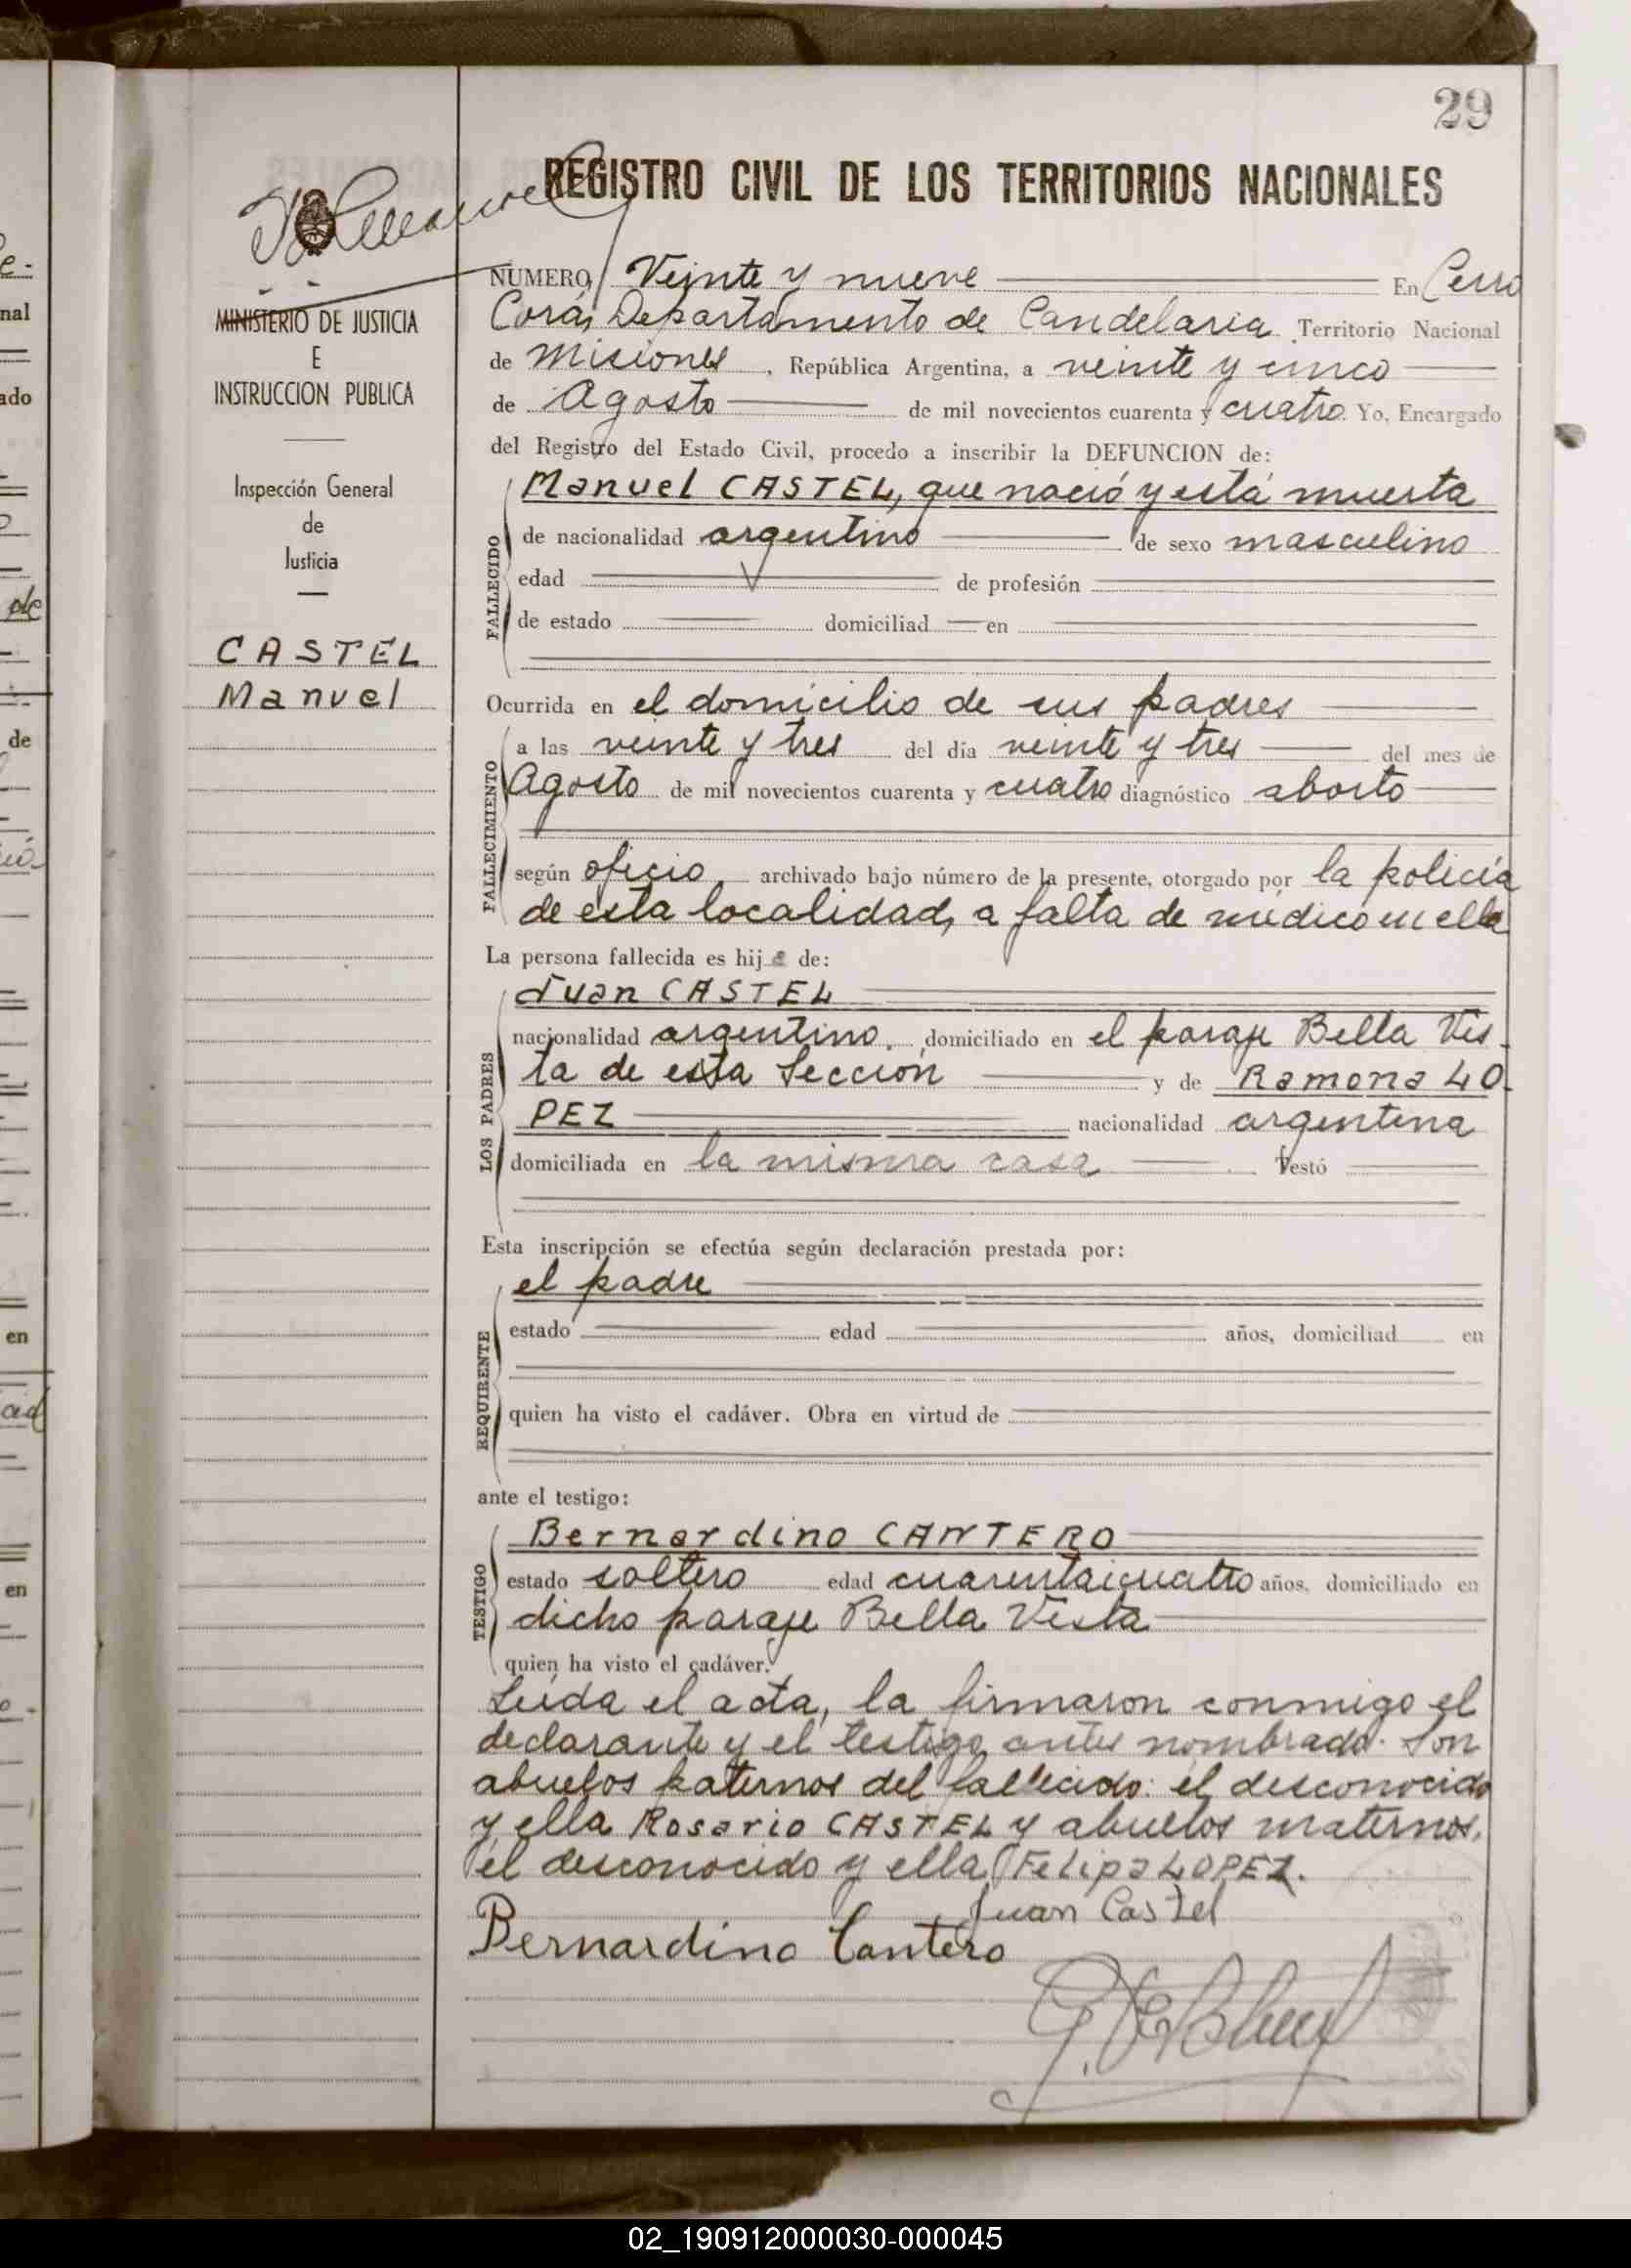 29
REGISTRO CIVIL DE LOS TERRITORIOS NACIONALES
MINISTERIO DE JUSTICIA
E
INSTRUCCION PUBLICA
Inspección General
de
Justicia
CASTEL
Manuel
NUMERO Veinte y nueve En Cerro
Corá, Departamento de Candelaria Territorio Nacional
de Misiones, República Argentina, a veinte y cinco
de Agosto de mil novecientos cuarenta y cuatro. Yo, Encargado
del Registro del Estado Civil, procedo a inscribir la DEFUNCION de:
FALLECIDO
Manuel CASTEL, que nació y está muerta
de nacionalidad argentino de sexo masculino
edad de profesión
de estado domiciliad en
Ocurrida en el domicilio de sus padres
FALLECIMIENTO
a las veinte y tres del día veinte y tres del mes de
Agosto de mil novecientos cuarenta y cuatro diagnóstico aborto
según oficio archivado bajo número de la presente, otorgado por la policía
de esta localidad, a falta de médico en ella
La persona fallecida es hij de:
LOS PADRES
Juan CASTEL
nacionalidad argentino. domiciliado en el paraje Bella Vis-
ta de esta Sección y de Ramona LO-
PEZ nacionalidad argentina
domiciliada en la misma casa Testó
Esta inscripción se efectúa según declaración prestada por:
REQUIRENTE
el padre
estado edad años, domiciliad en
quien ha visto el cadáver. Obra en virtud de
ante el testigo:
TESTIGO
Bernardino CANTERO
estado soltero edad cuarentaicuatro años, domiciliado en
dicho paraje Bella Vista
quien ha visto el cadáver.
Leída el acta, la firmaron conmigo el
declarante y el testigo antes nombrado. Son
abuelos paternos del fallecido: él desconocido
y ella Rosario CASTEL y abuelos maternos,
él desconocido y ella Felipa LOPEZ.
Juan Castel
Bernardino Cantero
02_190912000030-000045